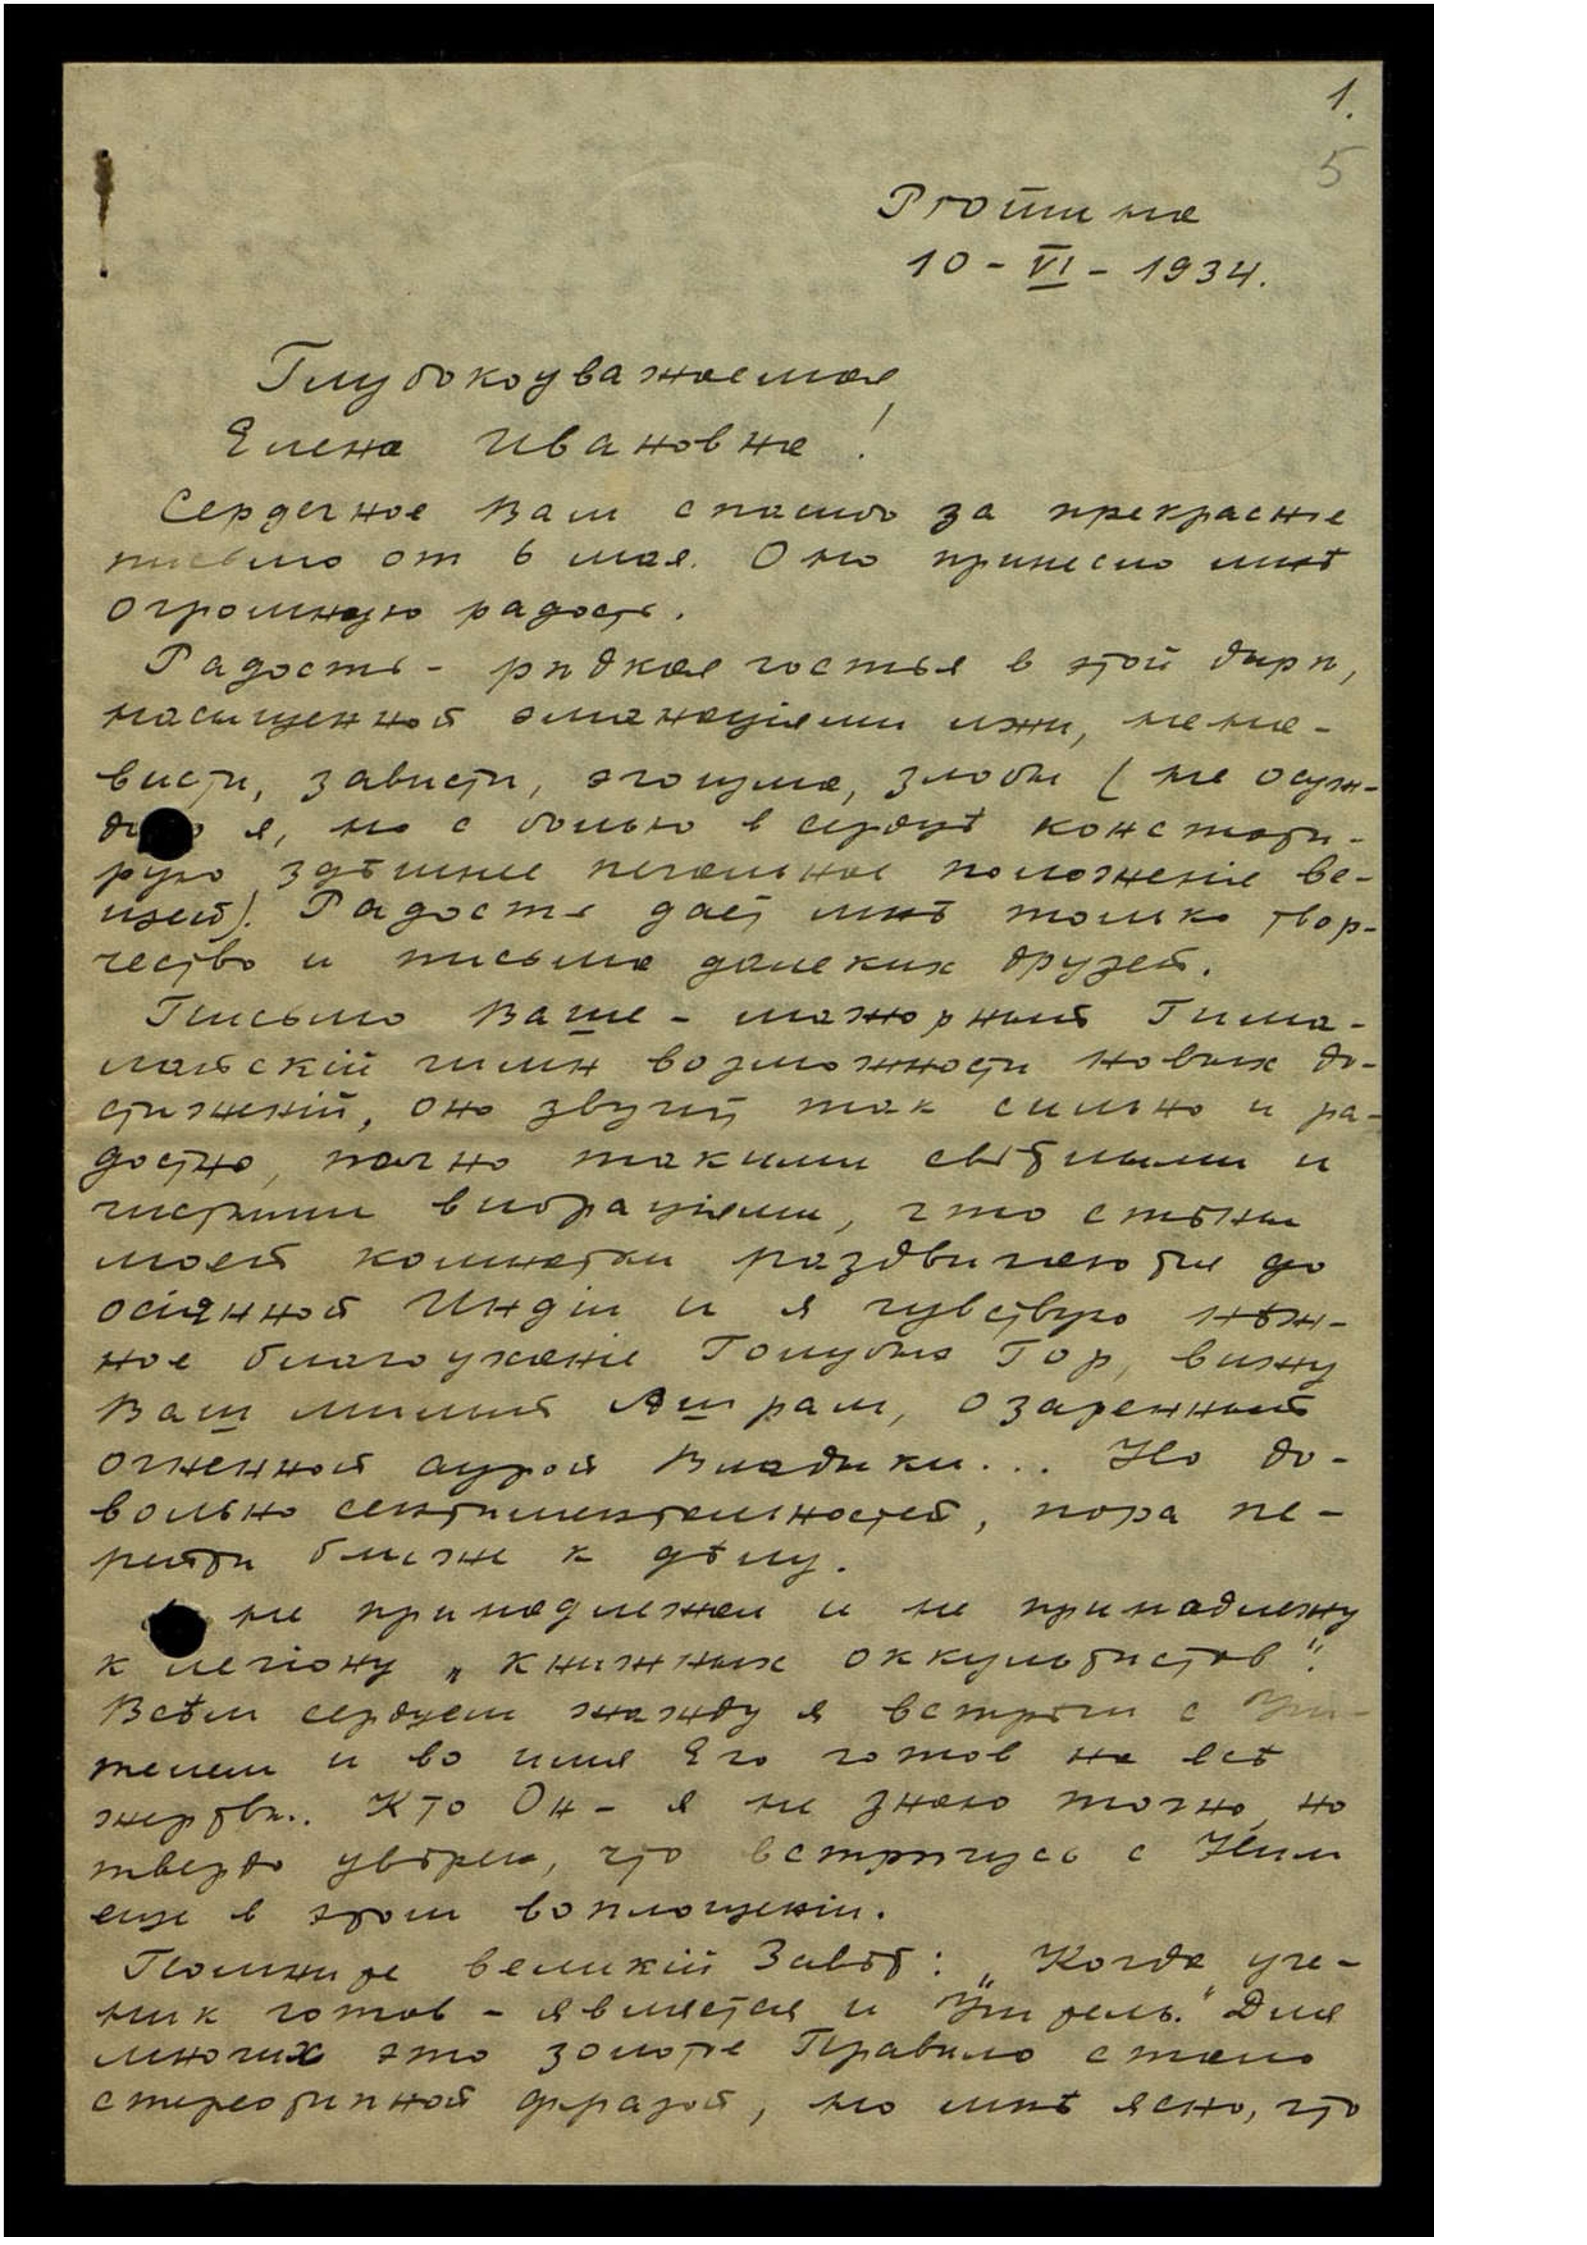 1.
5
Ртоттна
10 - VI - 1934.
Глубокоуважаемая
Елена Ивановна!
Сердечное Вам спасибо за прекрасне
письмо от 6 мая. Оно принесло мнѣ
огромную радость.
Радость - рѣдкая гостья в этой дырѣ,
насыщенной эманаціями лжи, нена-
висти, зависти, эгоизма, злобы (не осуж-
даю я, но с болью в сердцѣ констати-
рую здѣшнее печальное положеніе ве-
щей). Радость дает мнѣ только твор-
чество и письма далеких друзей.
Письмо Ваше - мажорный Гима-
лайскій гимн возможности новых до-
стиженій, оно звучит так сильно и ра-
достно, полно такими свѣтлыми и
чистыми вибраціями, что стѣны
моей комнатки раздвигаются до
осіянной Индіи и я чувствую нѣж-
ное благоуханіе Голубых Гор, вижу
Ваш милый Ашрам, озаренный
огненной аурой Владыки... Но до-
вольно сентиментальностей, пора пе-
рейти ближе к дѣлу.
не принадлежал и не принадлежу
к легіону „книжных оккультистов".
Всѣм сердцем жажду я встрѣчи с Учи-
телем и во имя Его готов на всѣ
жертвы. Кто Он - я не знаю точно, но
твердо увѣрен, что встрѣчусь с Ним
еще в этом воплощеніи.
Помните великій Завѣт: „Когда уче-
ник готов - является и Учитель." Для
многих это золотое Правило стало
стереотипной фразой, но мнѣ ясно, что